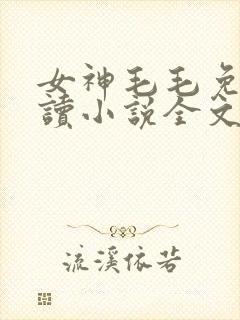 女神毛毛免
讀小說全文
流溪依若